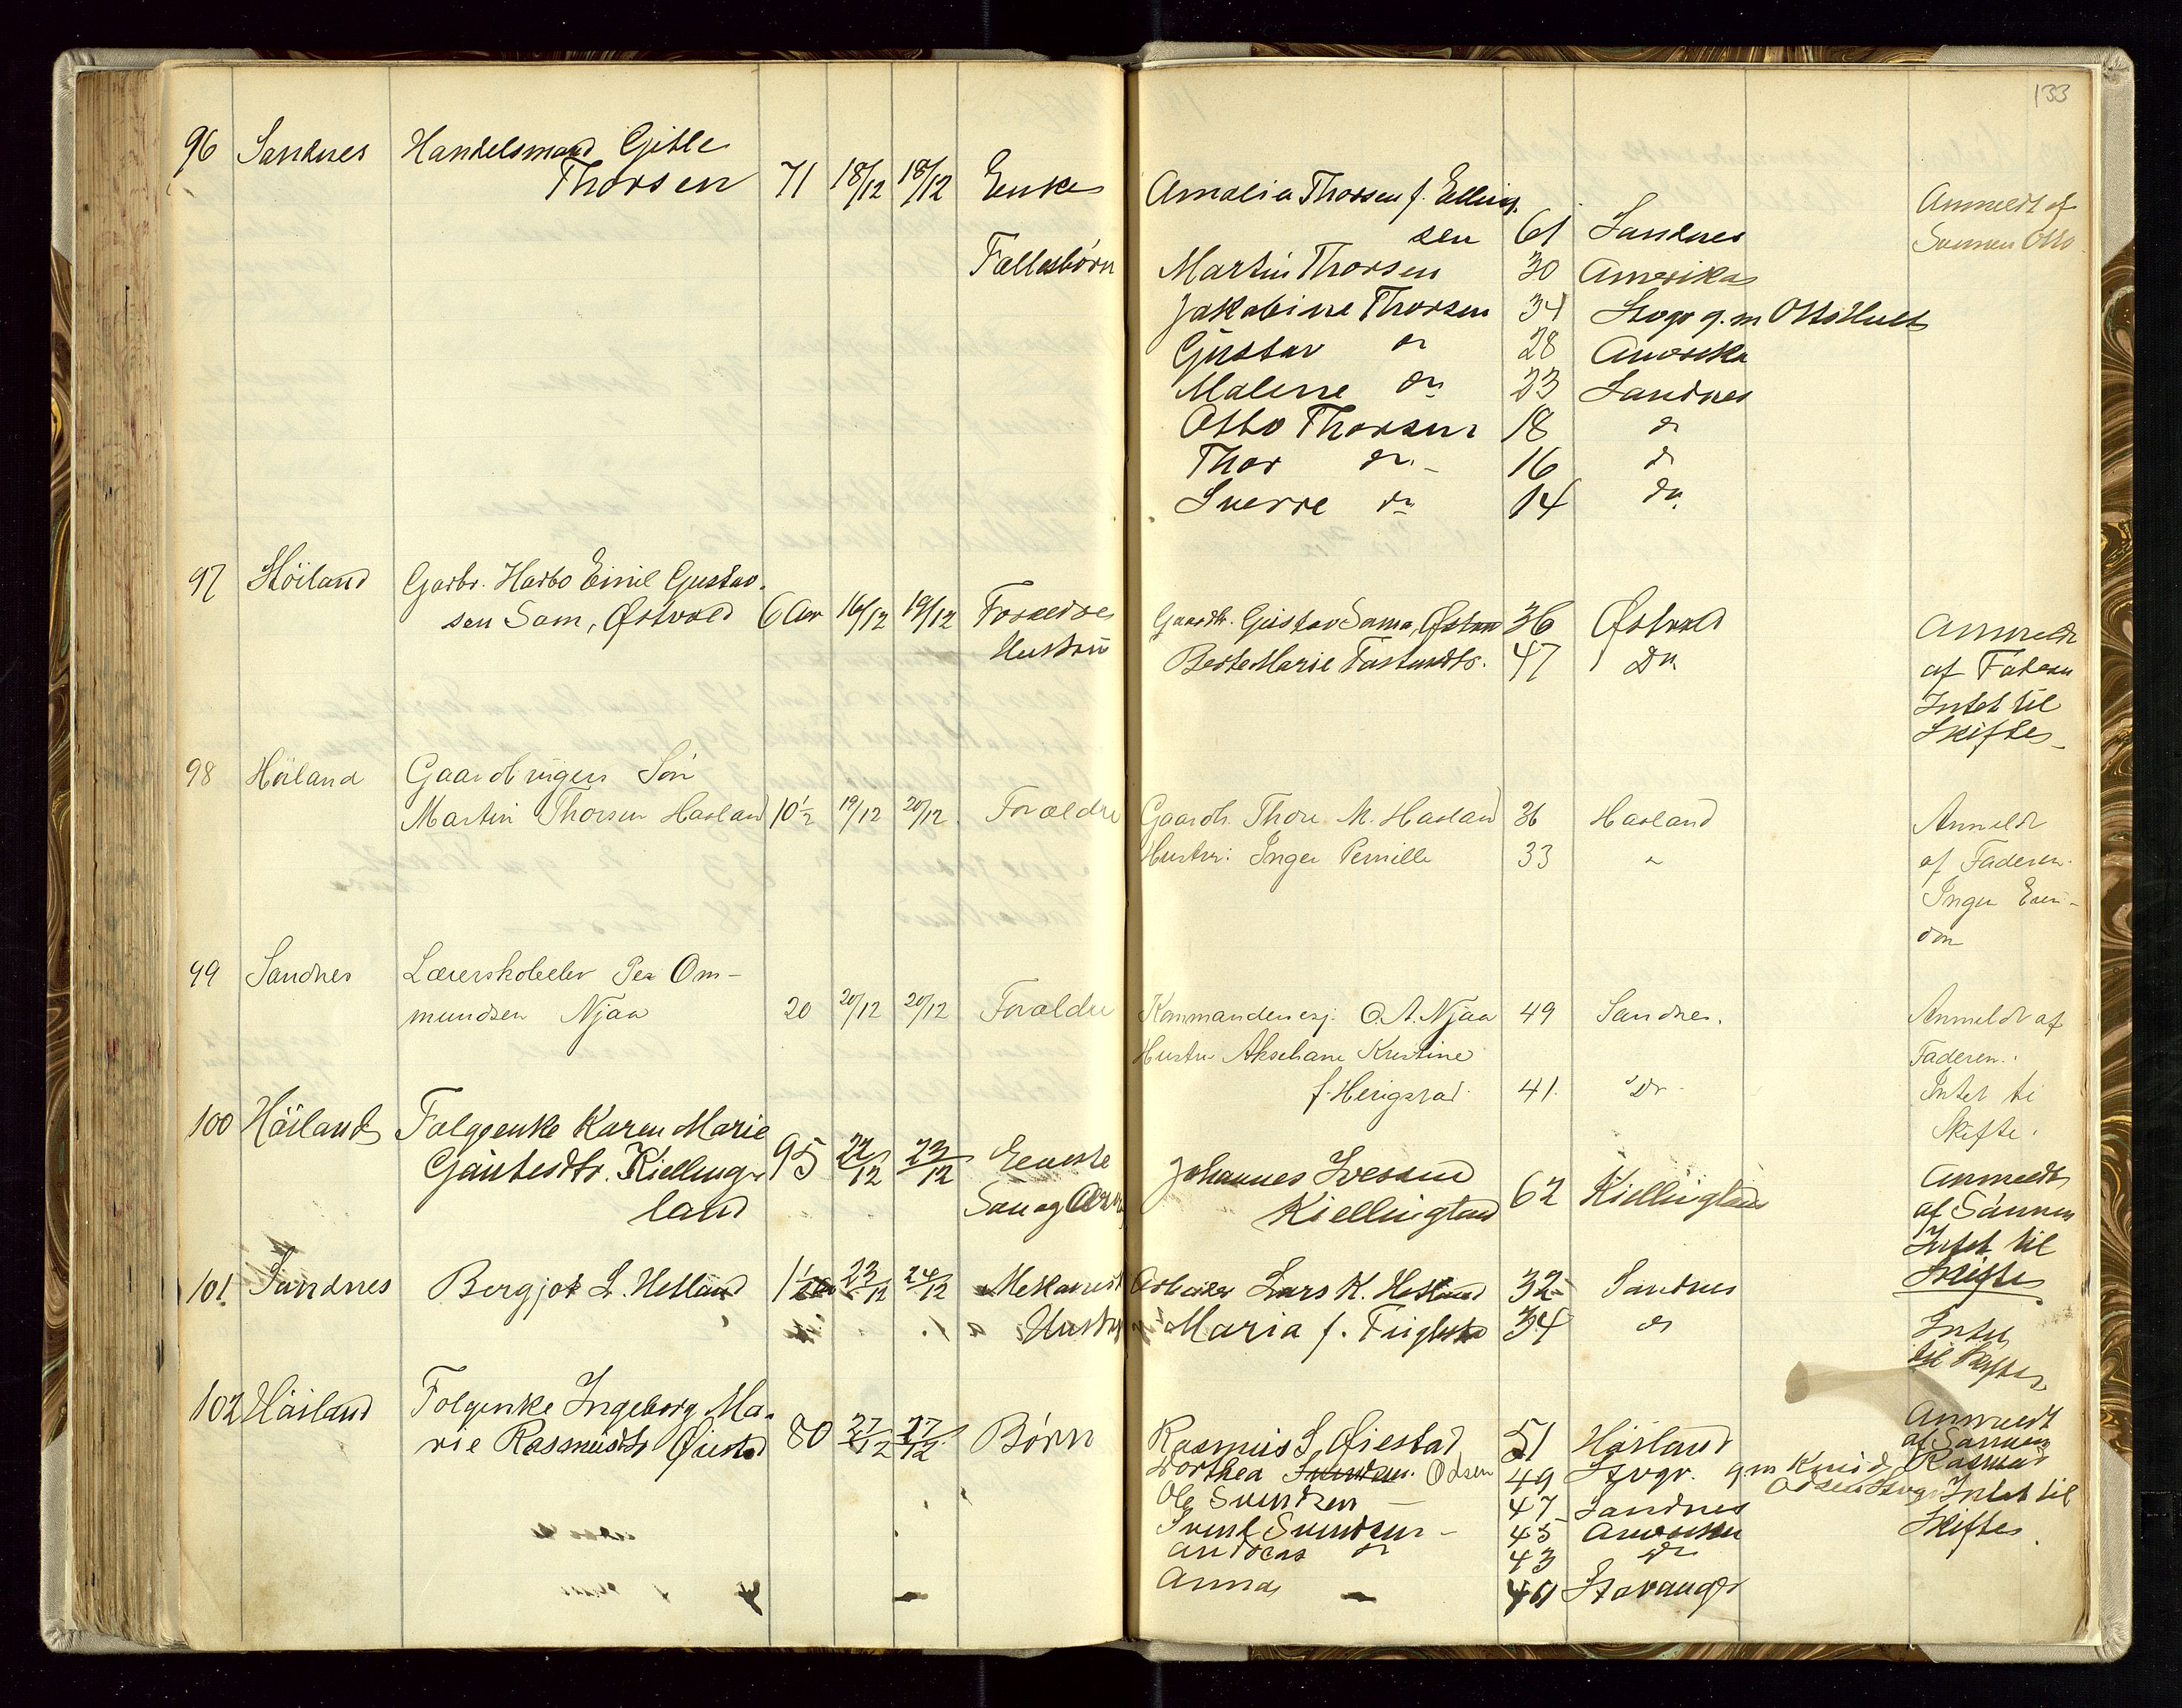 133
96 Sandnes Handelsmand Gitle
Thorsen 71 18/12 18/12 Enke Amalia Thorsen f. Elling.
sen 61 Sandnes Anmeldt af
Sønnen Otto
Fællesbørn Martin Thorsen 30 Amerika
Jakobine Thorsen 34 Stvgr g. m Otto
Gustav do 28 Amerika
Malene do 23 Sandnes
Otto Thorsen 18 do
Thor do - 16 do
Sverre do 14 do
97 Höiland Garbr. Harbo Emil Gustav.
sen Sam, Østvold 6 Aar 16/12 19/12 Forældre Gaardbr. Gustav Sama, 36 Østvold Anmeldt
Hustru Berte Marie 47 Do af Faderen
Intet til
Skifte
98 Höiland Gaardbrugers Sön
Martin Thorsen Hasland 10½ 19/12 20/12 Forældre Gaardb. Thore M. Hasland 36 Hasland Anmeldt
Hustru: Inger Pernille 33 " af Faderen.
Ingen Eien-
dom
99 Sandnes Lærerskoleelev Per Om-
mundsen Njaa 20 20/12 20/12 Forældre O. A. Njaa 49 Sandnes. Anmeldt af
Hustru Akseliane Kristine Faderen.
f. 41. Do Intet til
Skifte.
100 Höiland Folgeenke Karen Marie
Gautesdtr. Kielling-
land 95 22/12 23/12 Eeneste
Søn og Johannes Ivessen
Kiellingland 62 Kiellingland Anmeldt
af Sønnen
Intet til
Skifte
101 Sandnes Bergjot L. Hetland 1½ 23/12 24/12 Arbeider Lars K. Hetland 32 Sandnes
Hustru Maria f. 34 do Intet
til Skifte
102 Höiland Folgenke Ingeborg Ma-
rie Rasmusdtr Øiestad 80 27/12 27/12 Børn Rasmus S. Øiestad 51 Höiland Anmeldt
af Sønnen
Dorthea Odsen 49 Stvgr. gm Knud Odsen Stvgr Rasmus
Ole Svendsen 47 Sandnes Intet til
Svend Svendsen - 45 Amerika Skifte
Andreas do 43 do
Anna - 40 Stavanger